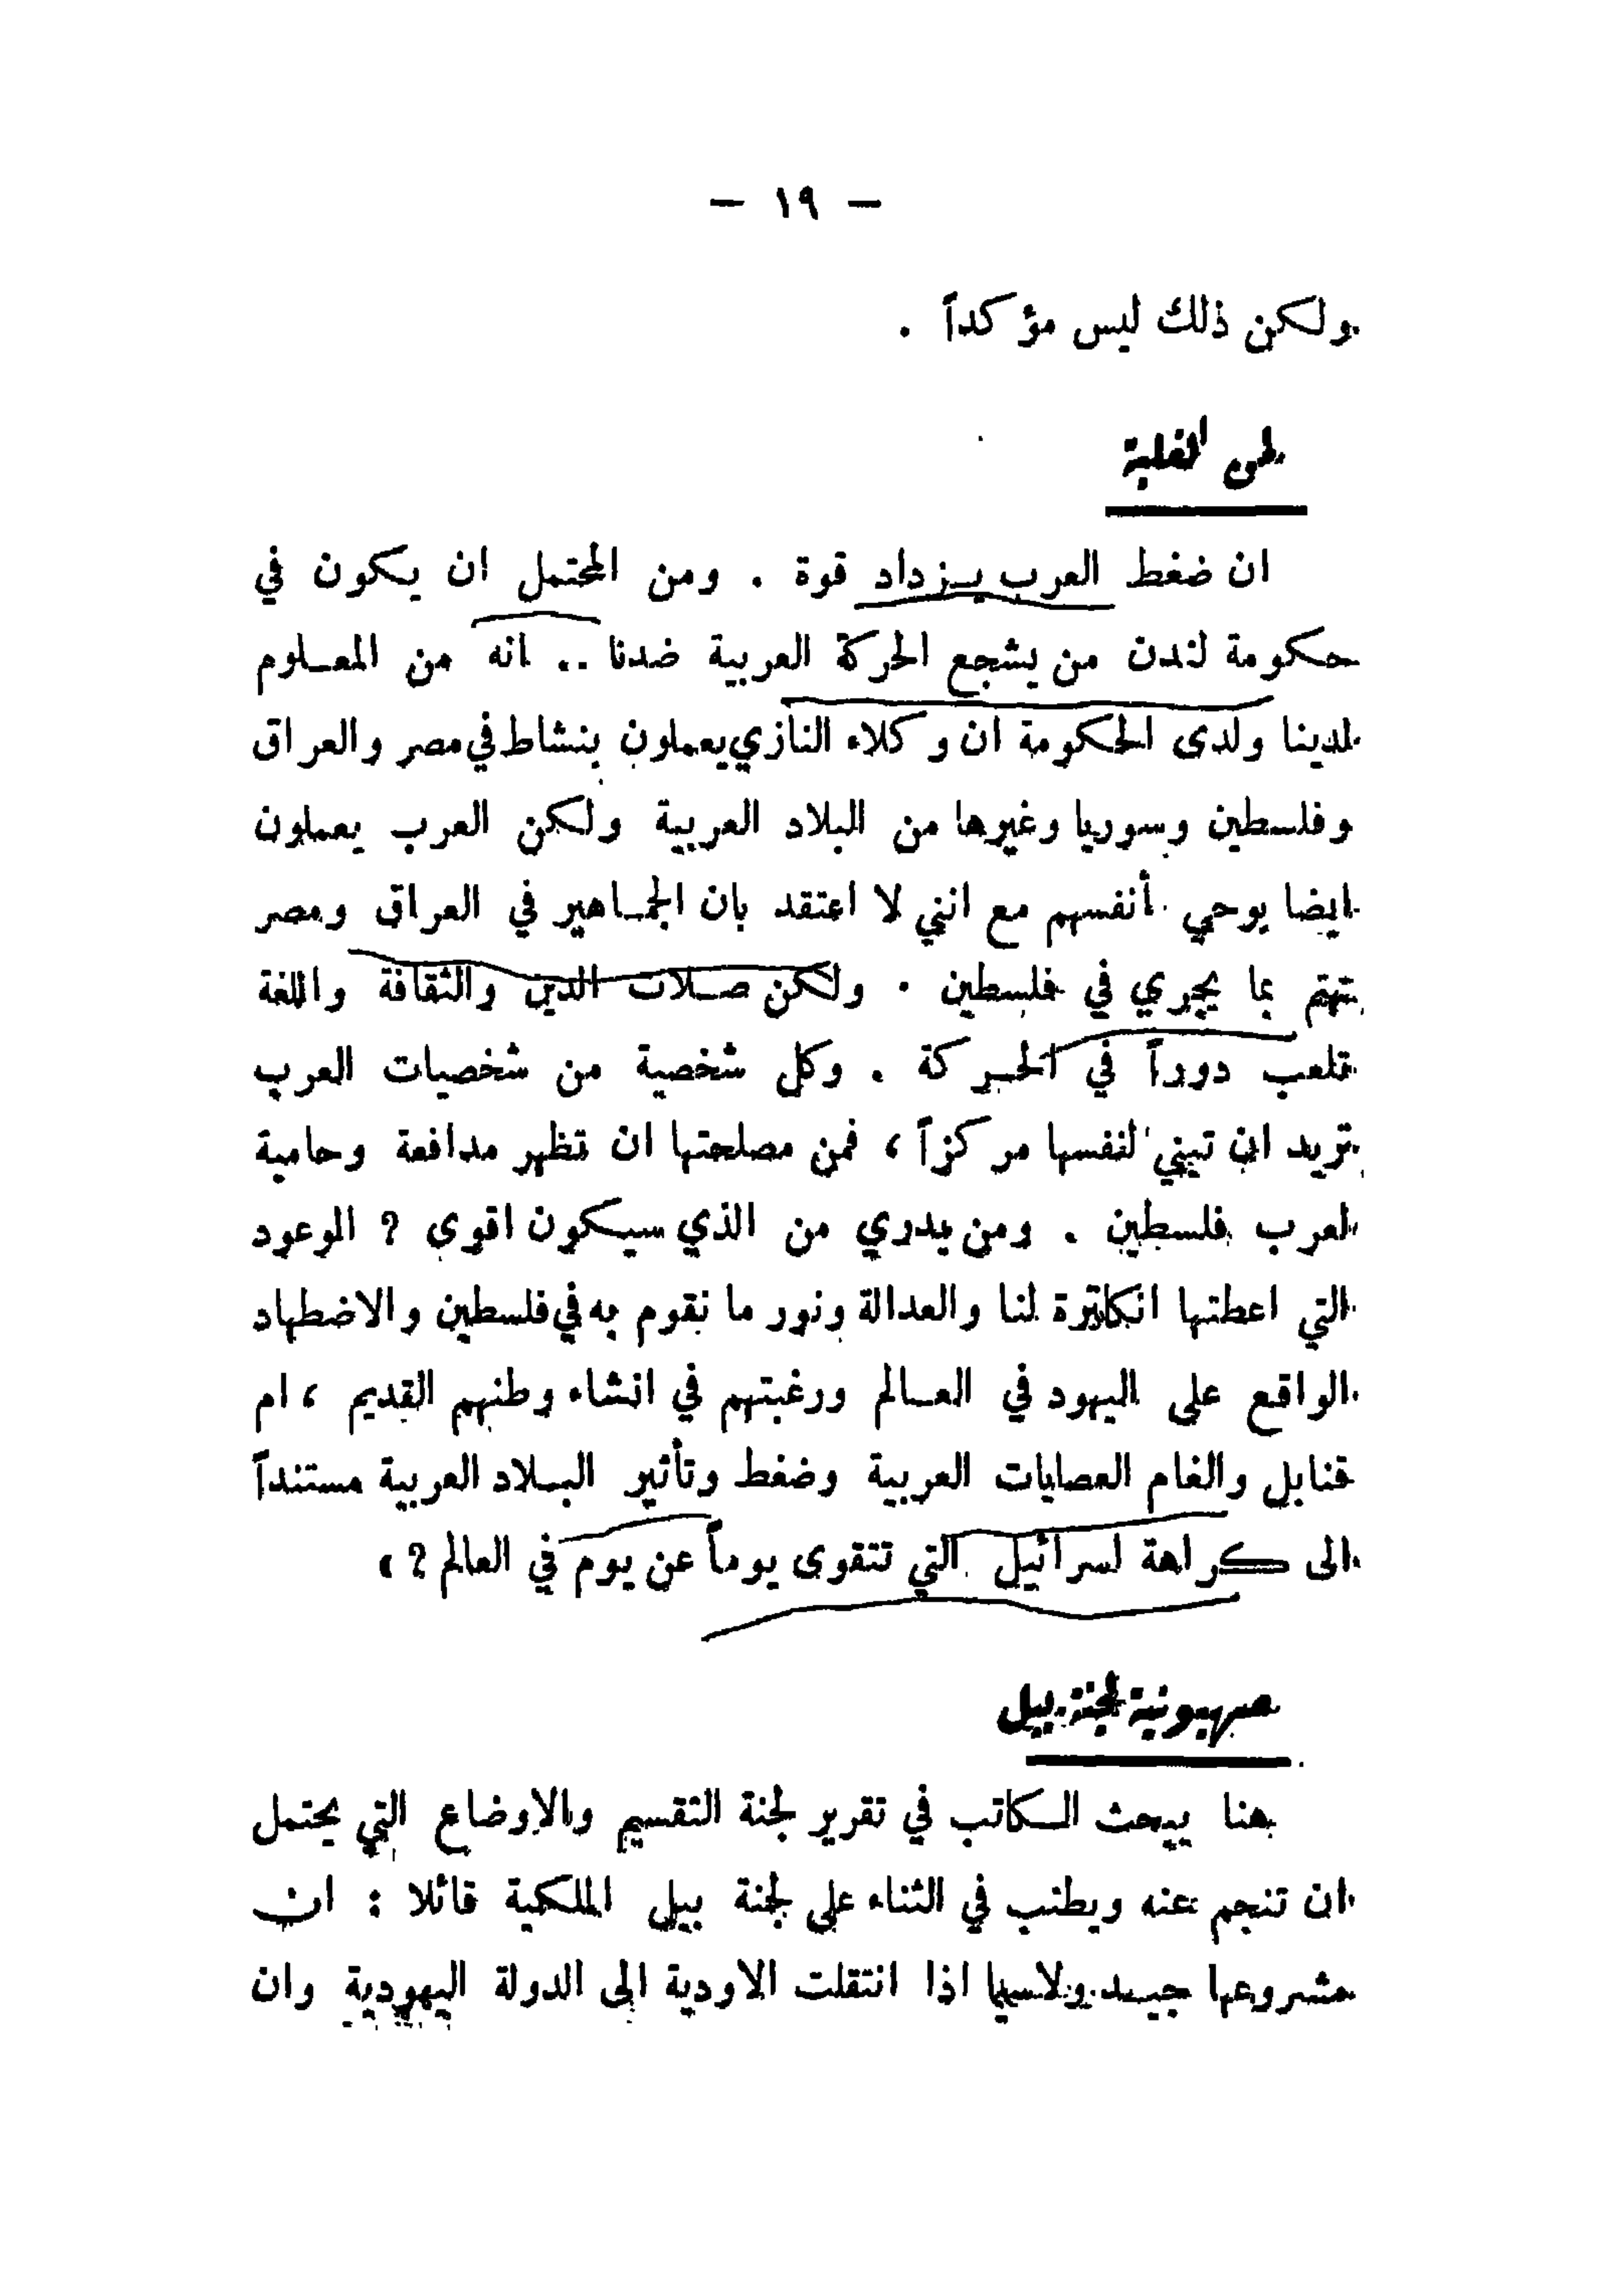 — ١٩ —
ولكن ذلك ليس مؤكداً .
لمن الغلبة
ان ضغط العرب يزداد قوة . ومن المحتمل ان يكون في
حكومة لندن من يشجع الحركة العربية ضدنا .. انه من المعلوم
لدينا ولدى الحكومة ان وكلاء النازي يعملون بنشاط في مصر والعراق
وفلسطين وسوريا وغيرها من البلاد العربية ولكن العرب يعملون
ايضا بوحي أنفسهم مع انني لا اعتقد بان الجماهير في العراق ومصر
تهتم بما يجري في فلسطين . ولكن صلات الدين والثقافة واللغة
تلعب دوراً في الحركة . وكل شخصية من شخصيات العرب
تريد ان تبني لنفسها مركزاً ، فمن مصلحتها ان تظهر مدافعة وحامية
لعرب فلسطين . ومن يدري من الذي سيكون اقوى ? الوعود
التي اعطتها انكلترة لنا والعدالة ونور ما نقوم به في فلسطين والاضطهاد
الواقع على اليهود في العالم ورغبتهم في انشاء وطنهم القديم ، ام
قنابل والغام العصابات العربية وضغط وتأثير البلاد العربية مستنداً
الى كراهة اسرائيل التي تتقوى يوماً عن يوم في العالم ? »
صهيونية لجنة بيل
هنا يبحث الكاتب في تقرير لجنة التقسيم والاوضاع التي يحتمل
ان تنجم عنه ويطنب في الثناء على لجنة بيل الملكية قائلا : ان
مشروعها جيد ولاسيما اذا انتقلت الاودية الى الدولة اليهودية وان